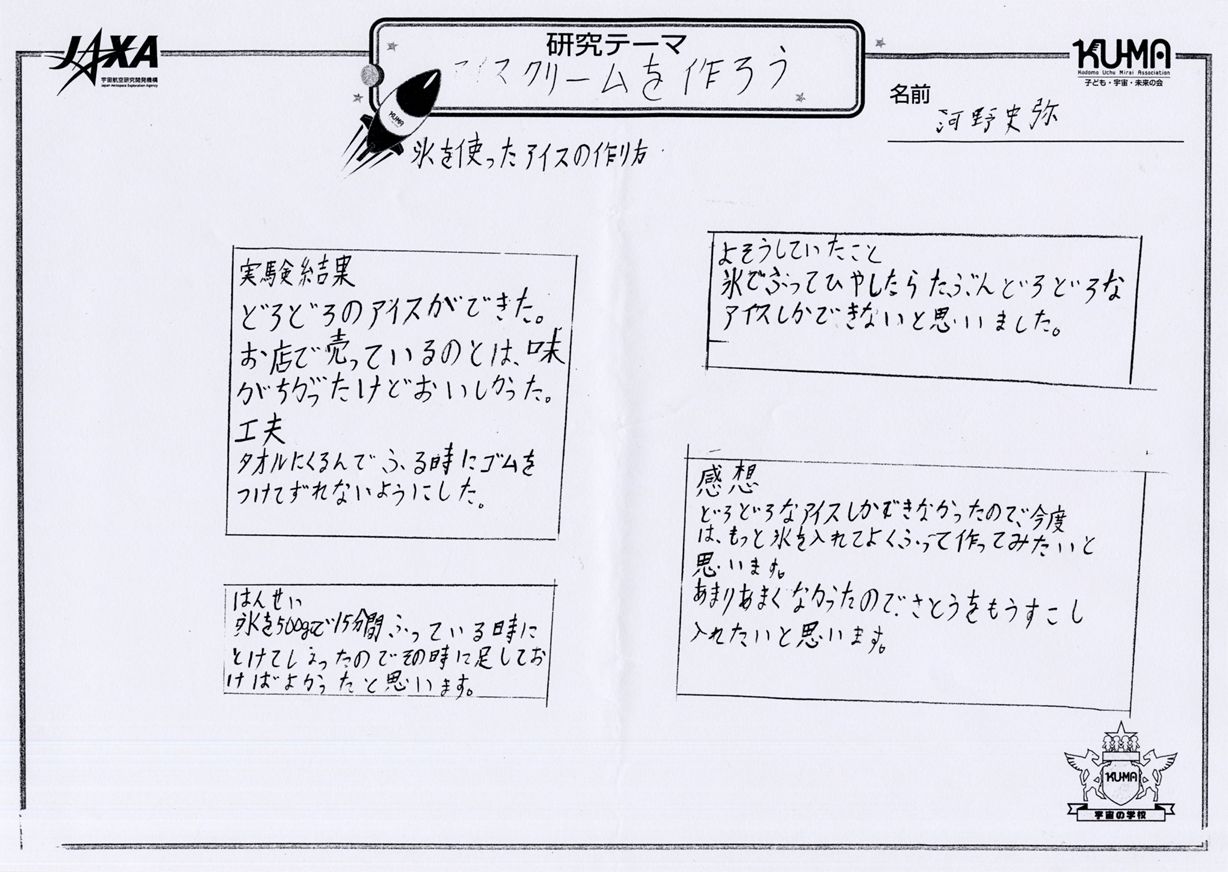 JAXA
宇宙航空研究開発機構
Japan Aerospace Exploration Agency
研究テーマ
アイスクリームを作ろう
KU-MA
Kodomo Uchu Mirai Association
子ども・宇宙・未来の会
名前
河野史弥
KUMA
氷を使ったアイスの作り方
実験結果
どろどろのアイスができた。
お店で売っているのとは、味
がちがったけどおいしかった。
工夫
タオルにくるんでふる時にゴムを
つけてずれないようにした。
はんせい
氷を500gで15分間ふっている時に
とけてしまったのでその時に足してお
けばよかったと思います。
よそうしていたこと
氷でふってひやしたらたぶんどろどろな
アイスしかできないと思いました。
感想
どろどろなアイスしかできなかったので、今度
は、もっと氷を入れてよくふって作ってみたいと
思います。
あまりあまくなかったので、さとうをもうすこし
入れたいと思います。
KU-MA
宇宙の学校